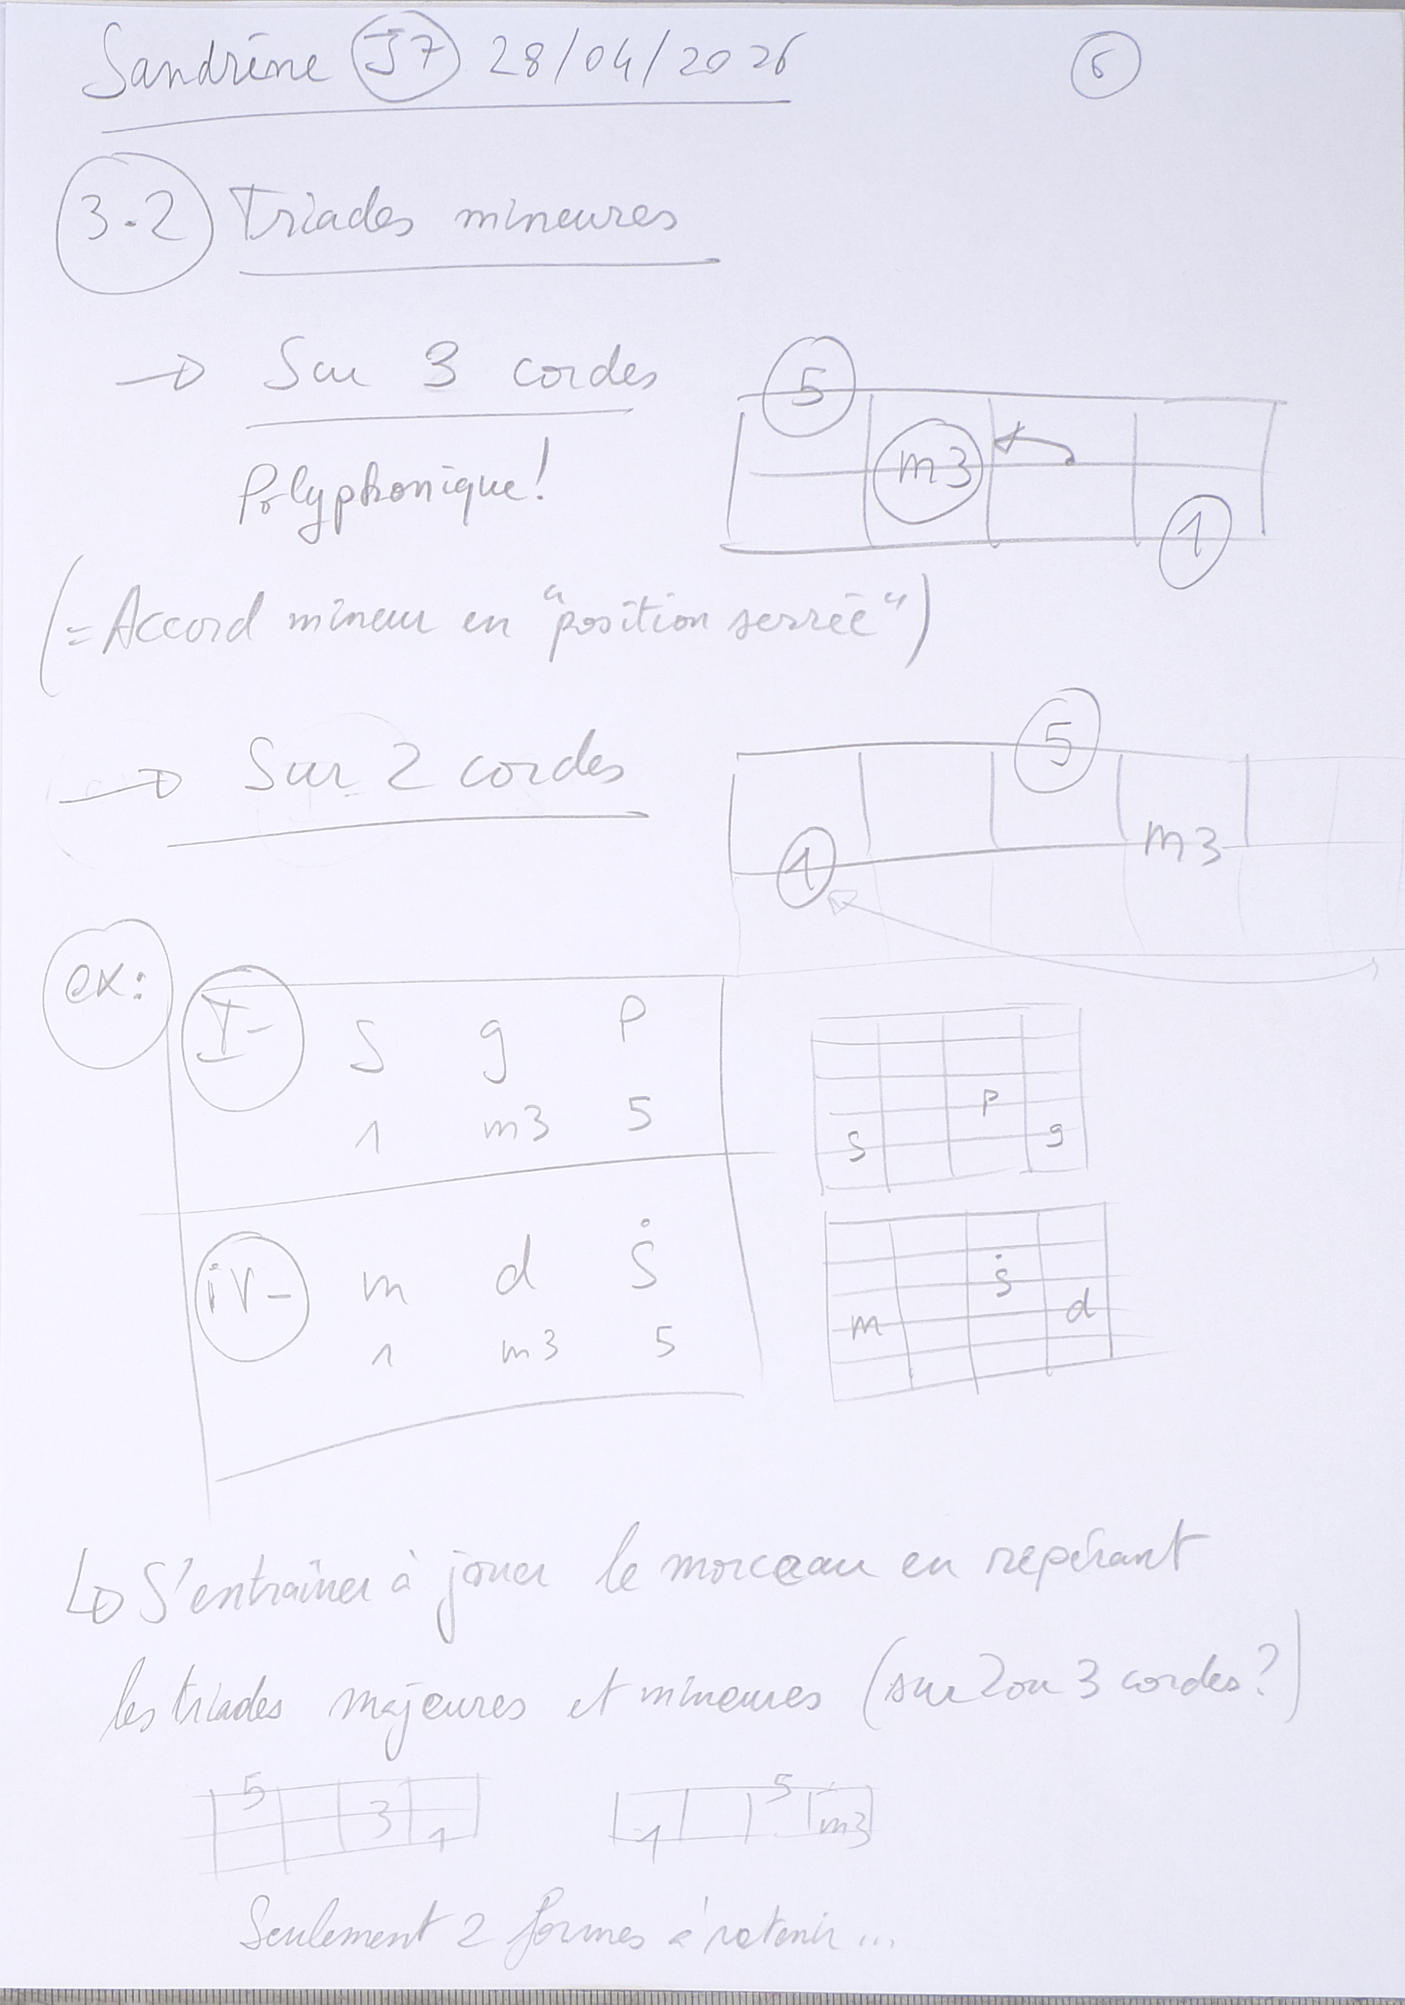 Sandrine J7 28/04/2026 6
3-2 Triades mineures
→ Sur 3 cordes
5
Polyphonique!
m3
1
(= Accord mineur en "position serrée")
→ Sur 2 cordes
5
m3
1
ex:
I- S g P
1 m3 5
P
S g
iv- m d Ṡ
1 m3 5
Ṡ
m d
↳ S'entraîner à jouer le morceau en repérant
les triades majeures et mineures (sur 2 ou 3 cordes?)
5 3 1
1 5 m3
Seulement 2 formes à retenir...